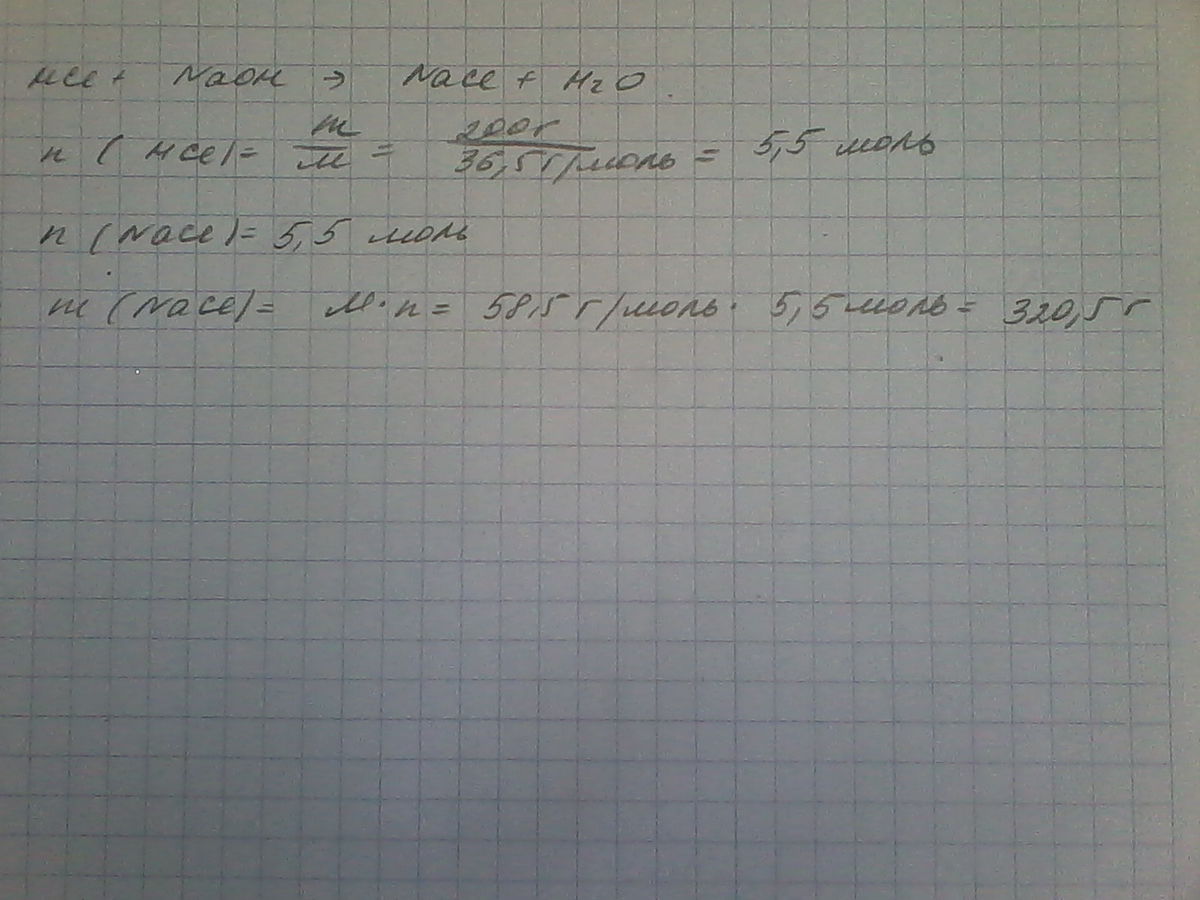 HCl + NaOH → NaCl + H₂O.
n (HCl) = m/M = 200г/36,5г/моль = 5,5 моль
n (NaCl) = 5,5 моль
m (NaCl) = M · n = 58,5 г/моль · 5,5 моль = 320,5 г